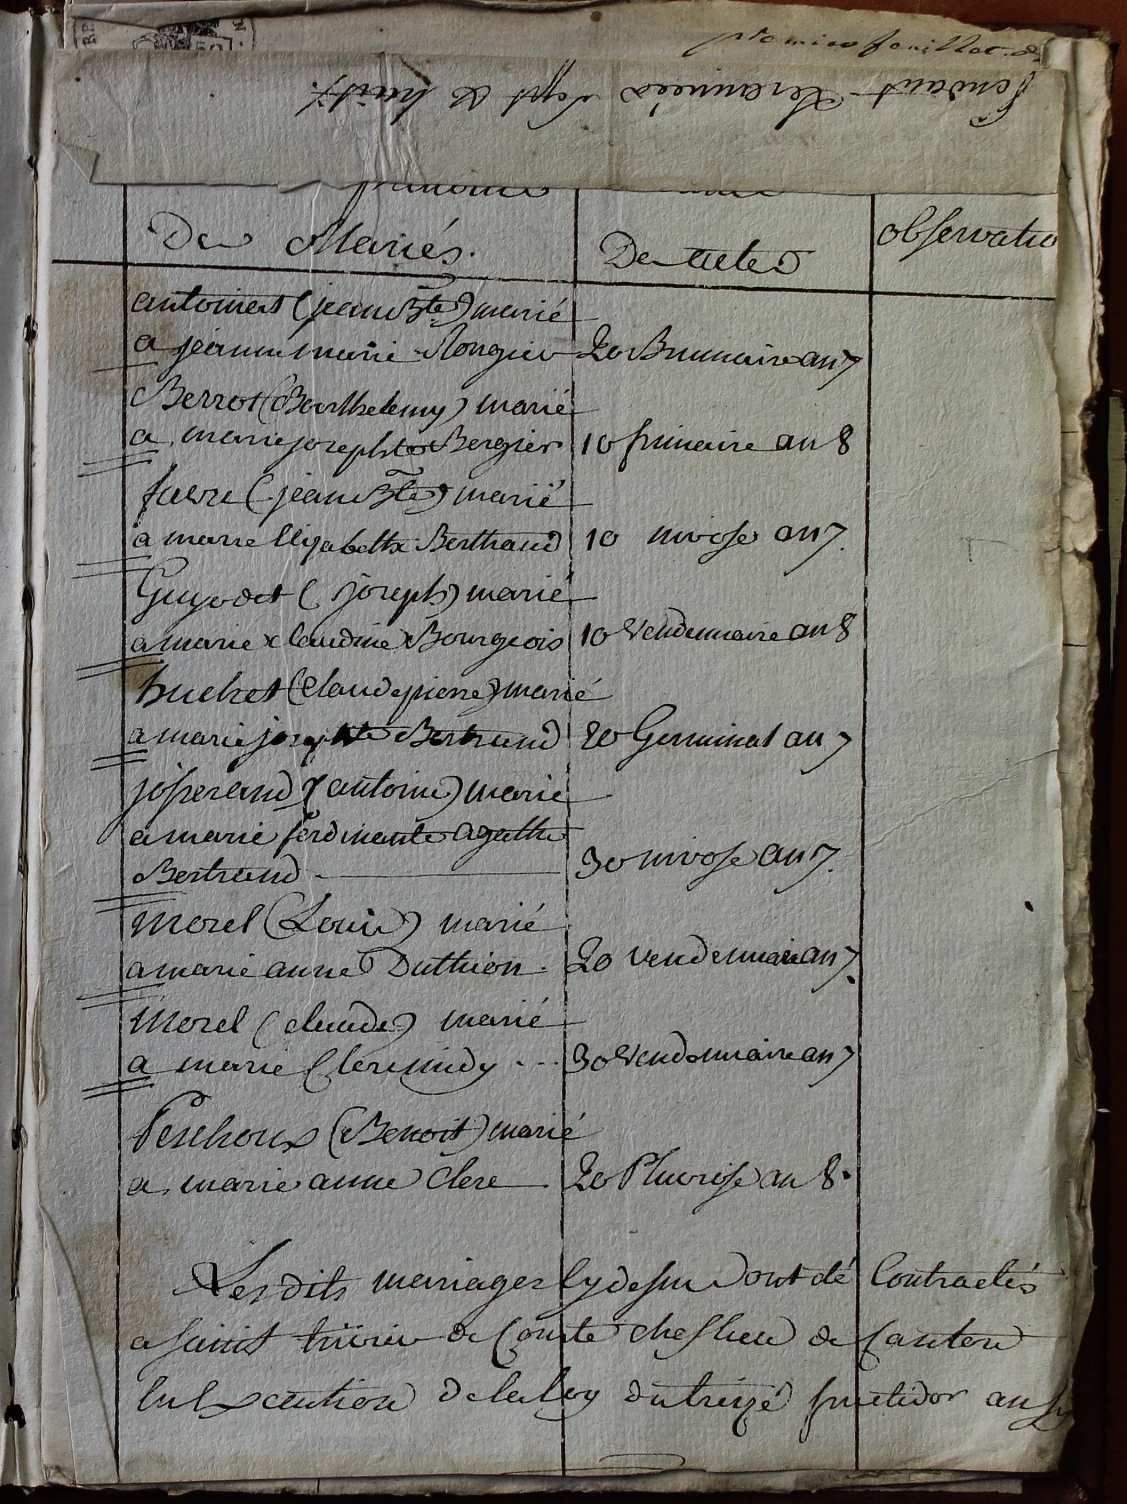 premier feuillet
pendant les années sept & huit.
prénoms
Des Mariés.
Des actes
observatio
antoinet (jean Bte) marié
a jeanne marie Rongier 20 Brumaire an 7
Berrot (Barthelemy) marié
a marie josephte Bergier 10 frimaire an 8
favre (jean Bte) marié
a marie Elizabeth Berthaud 10 nivose an 7.
Guyodet (joseph) marié
a marie claudine Bourgeois 10 Vendemiaire an 8
huchet (claude pierre) marié
a marie josephte Bertrand 20 Germinal an 7
josserand (antoine) marié
a marie ferdinante agathe
Bertrand 30 nivose an 7.
Morel (Louis) marié
a marie anne Duthion. 20 vendemiaire an 7.
Morel (claude) marié
a marie Clermidy 30 Vendemiaire an 7
Perchoux (Benoit) marié
a marie anne Clere 20 Pluviose an 8.
Les dits mariages cy dessus sont été Contractés
a saint trivier de Courte chef lieu de Canton
En Execution de la loy du treize fructidor an